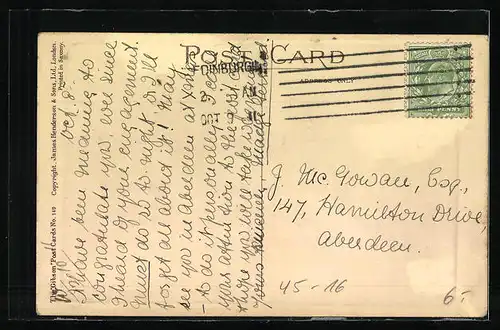 POST CARD
ADDRESS ONLY
EDINBURGH
OCT 9
J. McGowan, Esq.,
147, Hamilton Drive,
Aberdeen.
45-16
6.-
Oct 8.
I have been meaning to
congratulate you, ever since
I heard of your engagement.
Must do so to-night or I'll
forget all about it! May
see you in Aberdeen at
- to do it personally. I
your attention to the
hope you will take
Yours sincerely, Madge
The "Pelham" Post Cards No. 110 Copyright. James Henderson & Sons, Ltd., London.
Printed in Saxony.